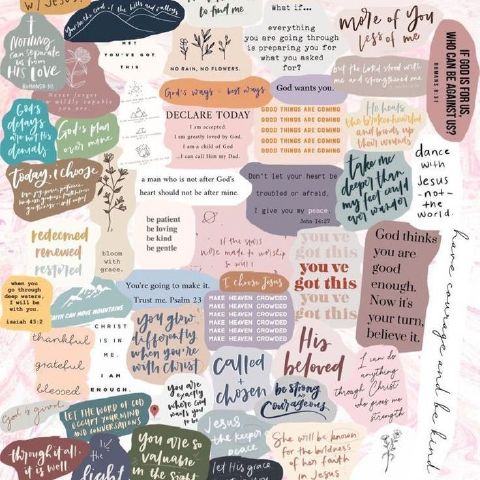 w/ Jesus
You in the end, of the hills and valleys
to find me
What if...
everything
you are going through
is preparing you for
what you asked
for?
more of You
less of me
IF GOD IS FOR US,
WHO CAN BE AGAINST US?
ROMANS 8:31
NOTHING
can separate
us from
HIS LOVE
ROMANS 8:38
HEY!
YOU'VE
GOT
THIS
NO RAIN, NO FLOWERS.
but the Lord stood with
me and strengthened me
Never forget
how wildly capable
you are.
God's ways > best ways
God wants you.
God's
delays
are not His
denials
God's plan
over mine
DECLARE TODAY
I am accepted.
I am greatly loved by God.
I am a child of God
...I can call Him my Dad.
GOOD THINGS ARE COMING
GOOD THINGS ARE COMING
GOOD THINGS ARE COMING
GOOD THINGS ARE COMING
GOOD THINGS ARE COMING
He heals
the brokenhearted
and binds up
their wounds
dance
with
Jesus
-not-
the
world.
today, I choose
a man who is not after God's
heart should not be after mine.
Don't let your heart be
troubled or afraid.
I give you my peace
John 14:27
take me
deeper than
my feet could
ever wander
redeemed
renewed
restored
bloom
with
grace.
be patient
be loving
be kind
be gentle
if the stars
were made to worship
so will I
you've
got this
you've
got this
you've
got this
God thinks
you are
good
enough.
Now it's
your turn,
believe it.
have courage and be kind
when you
go through
deep waters,
I will be
with you
isaiah 43:2
FAITH CAN MOVE MOUNTAINS.
You're going to make it.
Trust me. Psalm 23
I choose Jesus
MAKE HEAVEN CROWDED
MAKE HEAVEN CROWDED
MAKE HEAVEN CROWDED
MAKE HEAVEN CROWDED
MAKE HEAVEN CROWDED
thankful
grateful
blessed
CHRIST
IS IN
ME.
I AM
ENOUGH.
you glow
differently
when you're
with Christ
called
+
chosen
His
beloved
I can do
anything
through Christ
who gives me
strength
God is good
LET THE WORD OF GOD
OCCUPY YOUR MIND
AND CONVERSATIONS
you are
exactly
where God
wants you
to be
be strong
and
courageous.
through it all
it is well
the
light
you are so
valuable
in the sight
Jesus
the keeper
peace
let His grace
She will be known
for the boldness
of her faith
in Jesus